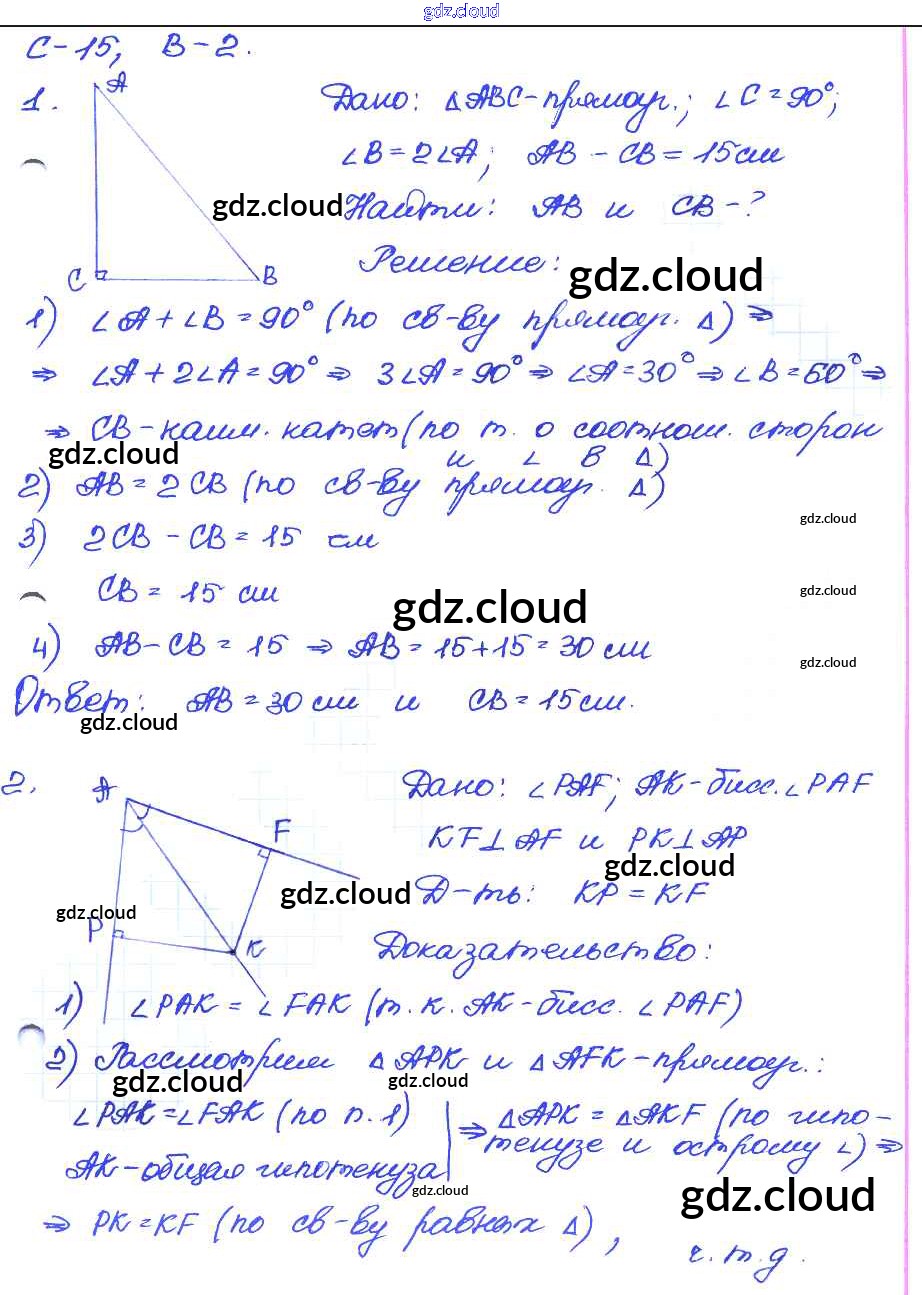 gdz.cloud
С-15, В-2.
1.
A
C
B
Дано: △ABC-прямоуг.; ∠C=90°;
∠B=2∠A; AB-CB=15см
gdz.cloud
Найти: AB и CB-?
Решение:
gdz.cloud
1) ∠A+∠B=90° (по св-ву прямоуг. △) ⇒
⇒ ∠A+2∠A=90° ⇒ 3∠A=90° ⇒ ∠A=30° ⇒ ∠B=60° ⇒
⇒ CB-наим. катет (по т. о соотнош. сторон
и ∠ в △)
gdz.cloud
2) AB=2CB (по св-ву прямоуг. △)
gdz.cloud
3) 2CB-CB=15 см
CB=15 см
gdz.cloud
gdz.cloud
4) AB-CB=15 ⇒ AB=15+15=30 см
gdz.cloud
Ответ: AB=30 см и CB=15 см.
gdz.cloud
2.
A
F
P
K
Дано: ∠PAF; AK-бисс. ∠PAF
KF⊥AF и PK⊥AP
gdz.cloud
gdz.cloud
Д-ть: KP=KF
gdz.cloud
Доказательство:
1) ∠PAK=∠FAK (т.к. AK-бисс. ∠PAF)
2) Рассмотрим △APK и △AFK-прямоуг.:
gdz.cloud
gdz.cloud
∠PAK=∠FAK (по п.1)
AK-общая гипотенуза
⇒ △APK=△AKF (по гипо-
тенузе и острому ∠) ⇒
gdz.cloud
gdz.cloud
⇒ PK=KF (по св-ву равных △),
ч.т.д.